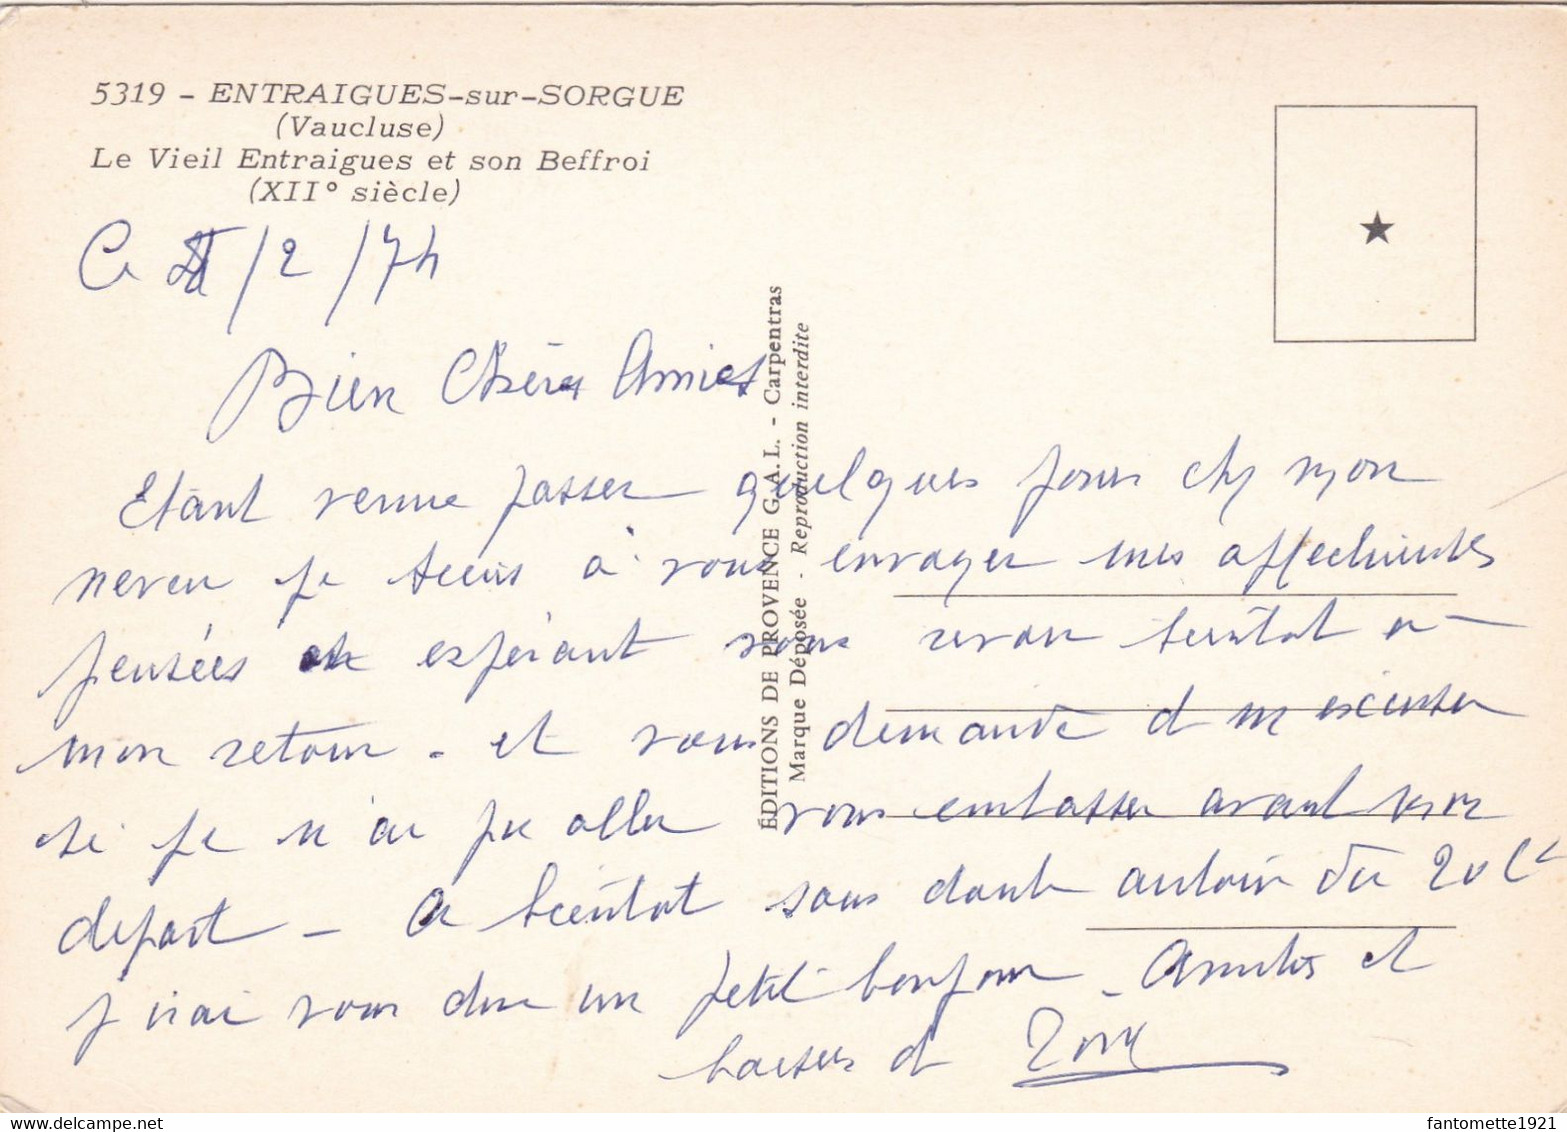 5319 - ENTRAIGUES-sur-SORGUE
(Vaucluse)
Le Vieil Entraigues et son Beffroi
(XII° siècle)
Ce /2/74
Bien Chères Amies
Etant venue passer quelques jours chez mon
neveu je tiens à vous envoyer mes affectueuses
pensées en espérant vous revoir bientôt a
mon retour - et vous demande d m'excuser
si je n'ai pu aller vous embrasser avant mon
depart - a bientot sans doute autour du 20 Ct
j'irai vous dire un petit bonjour - Amitiés et
baisers d
ÉDITIONS DE PROVENCE G.A.L. - Carpentras
Marque Déposée - Reproduction interdite
fantomette1921
delcampe.net